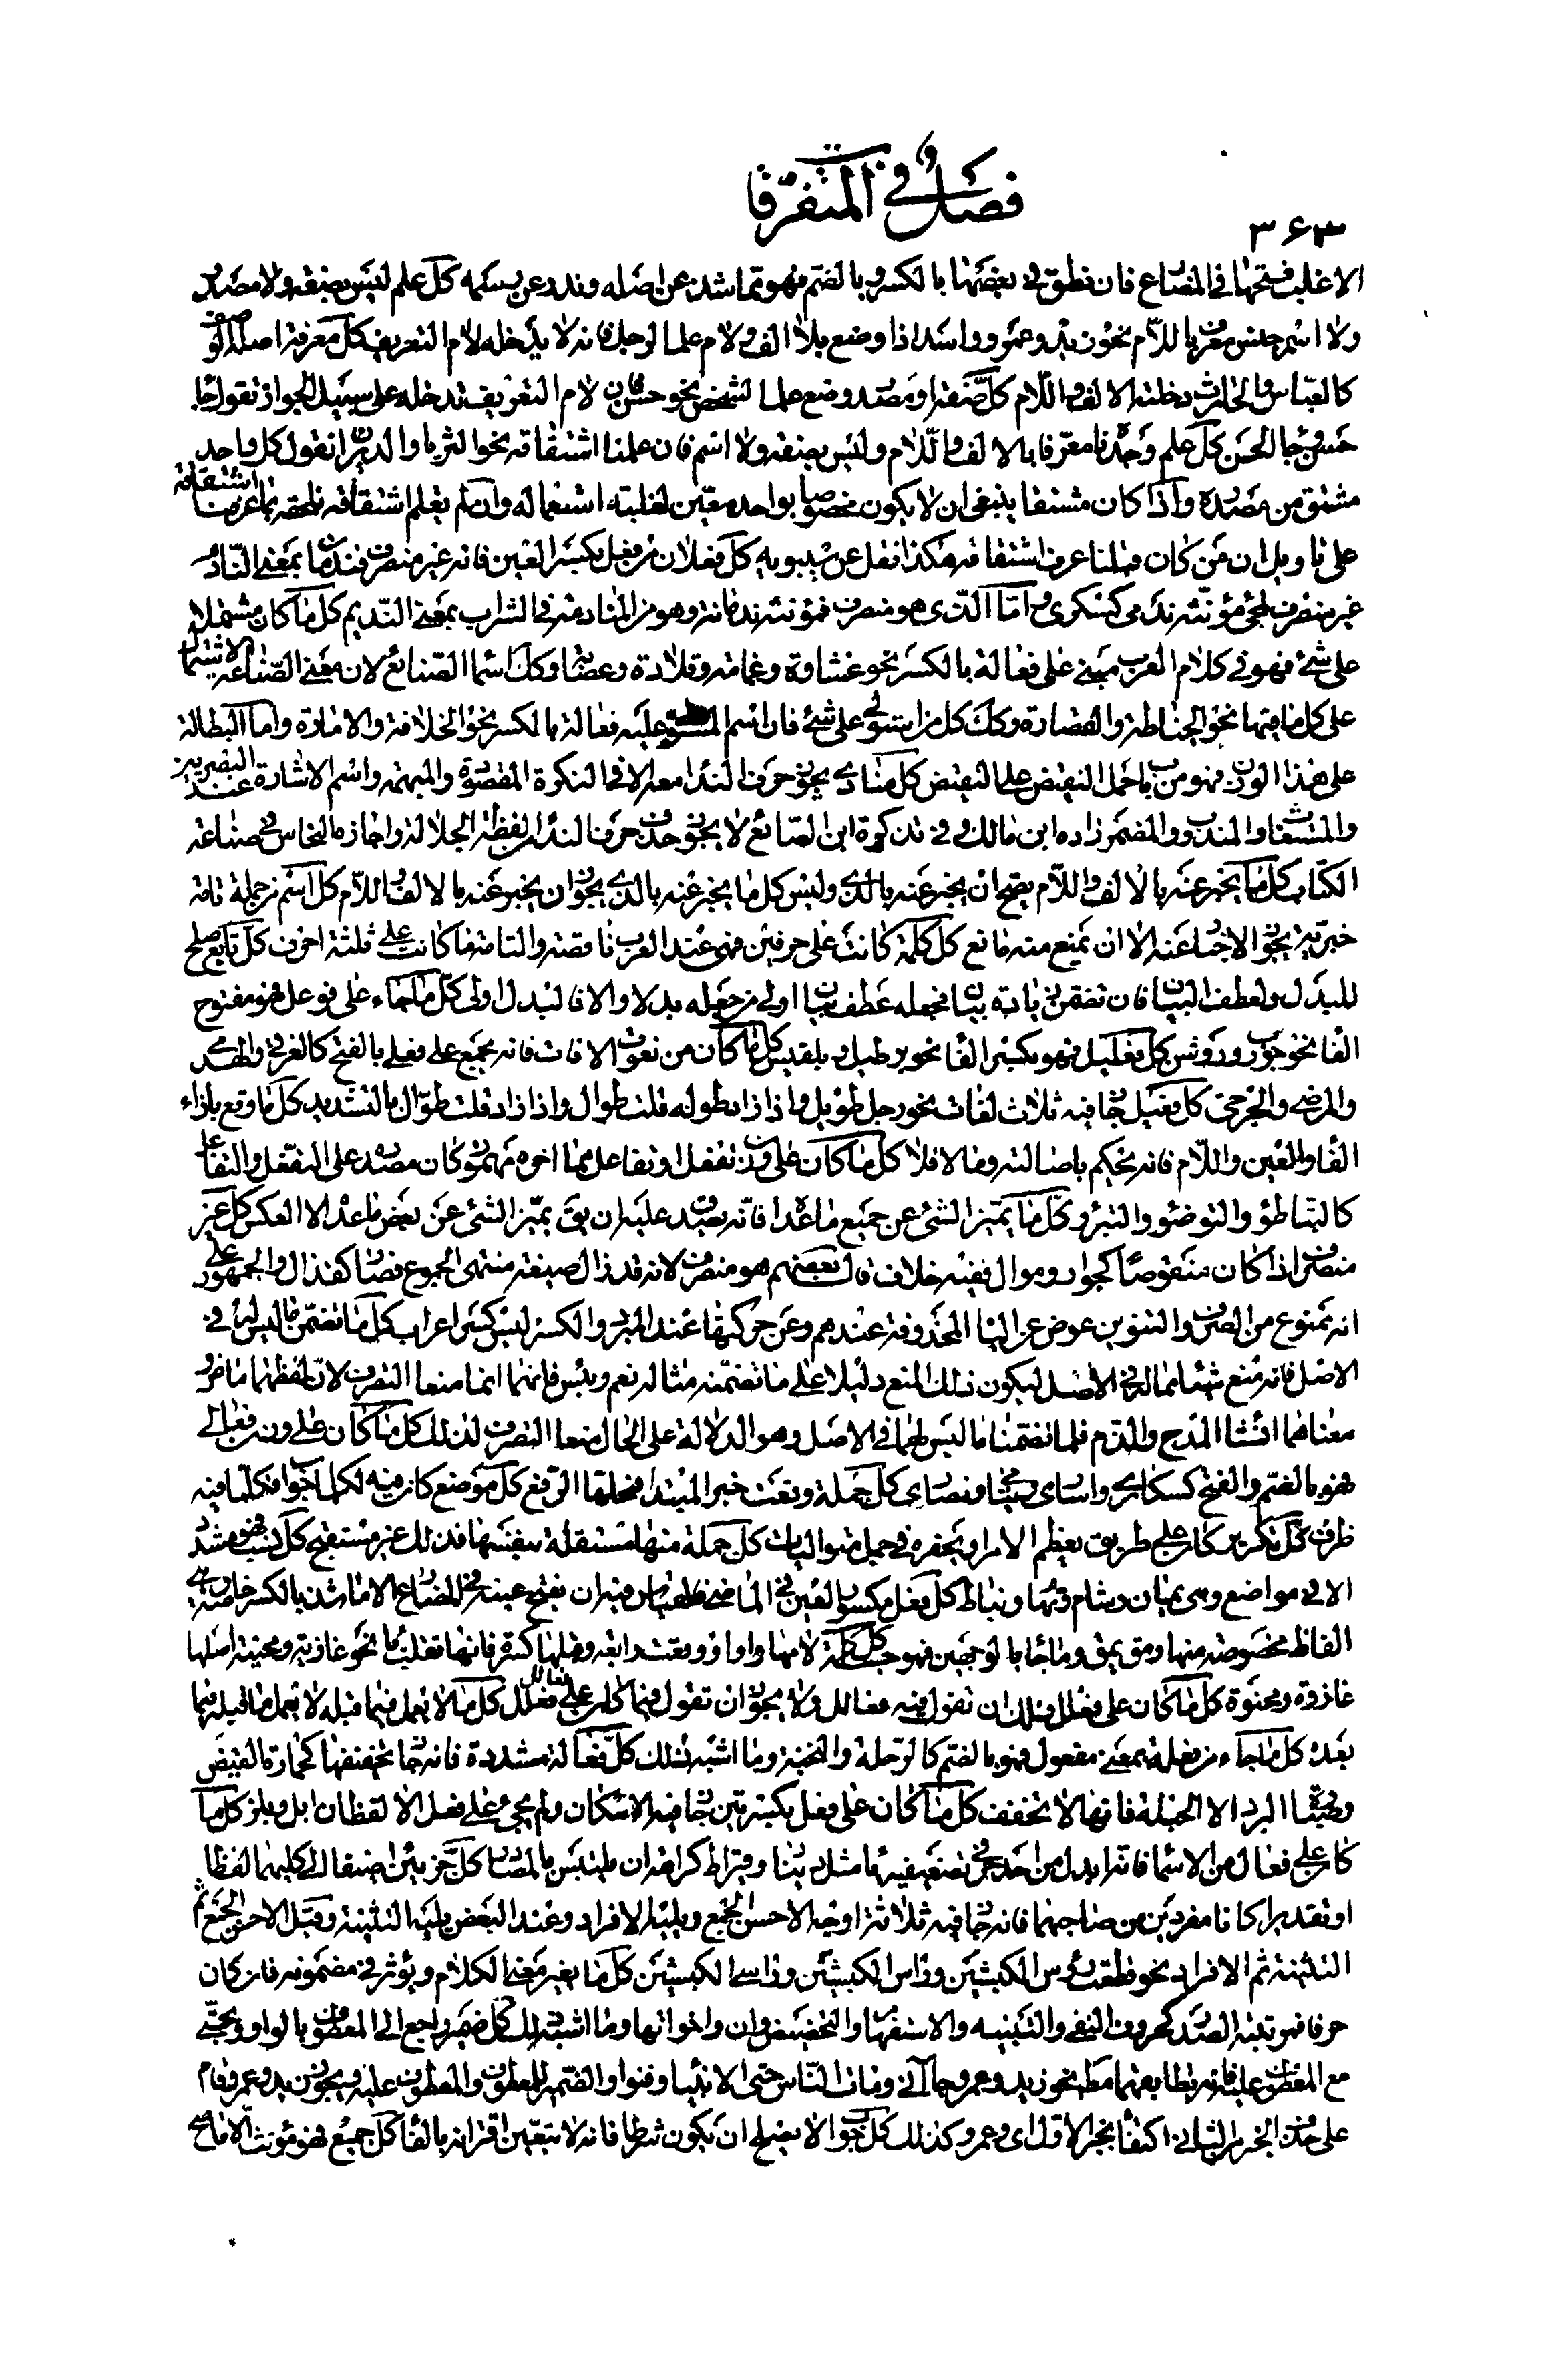 فصل في المتفرقات
٣٦٣
الاغلب فتحها في المضارع فان نطق في بعضها بالكسر وبالضم فهو مما شذ عن اصله وندر عن بسمله كل علم ليس بصفة ولا مصدر
ولا اسم جنس معرف باللام نحو زيد وعمرو واسد اذا وضع بلا الف ولام علما لرجل فانه لا يدخله لام التعريف كل معرفة اصله الوصف
كالعباس والحارث دخلته الالف واللام كل صفة او مصدر وضع علما لشخص نحو حسن فان لام التعريف تدخله على سبيل الجواز تقول جاء
حسن وجاء الحسن كل علم وجدنا معرفا بالالف واللام وليس بصفة ولا اسم فان علمنا اشتقاقه نحو الثريا والدبران تقول كل واحد
مشتق من مصدره واذا كان مشتقا ينبغي ان لا يكون مخصوصا بواحد معين لغلبته استعماله وان لم يعلم اشتقاقه نلحقه بما عرفنا اشتقاقه
على تاويل ان من كان قبلنا عرف اشتقاقه هكذا نقل عن سيبويه كل فعلان من فعل بكسر العين فانه غير منصرف فندمان بمعنى النادم
غير منصرف لمجئ مؤنثه ندمى كسكرى واما الذى هو منصرف فمؤنثه ندمانة وهو من المنادمة في الشراب بمعنى النديم كل ما كان مشتملا
على شئ فهو في كلام العرب مبنى على فعالة بالكسر نحو غشاوة وعمامة وقلادة وعصابة وكك اسماء الصنائع لان معنى الصناعة الاشتمال
على كل ما فيها نحو الخياطة والقصارة وكك كل من استولى على شئ فان اسم المستولى عليه فعالة بالكسر نحو الخلافة والامارة واما البطالة
على هذا الوزن فهو من باب حمل النقيض على النقيض كل منادى يجوز حذف حرف الندا معه الا في النكرة المقصودة والمبهمة واسم الاشارة عند البصريين
والمستغاث والمندوب والمضمر زاده ابن مالك وفي تذكرة ابن الصائغ لا يجوز حذف حرف الندا من لفظة الجلالة واجازه النحاس في صناعة
الكتاب كل ما يخبر عنه بالالف واللام يصح ان يخبر عنه بالذى وليس كل ما يخبر عنه بالذى يجوز ان يخبر عنه بالالف واللام كل اسم من جملة تامة
خبرية يجوز الاخبار عنه الا ان يمنع منه مانع كل كلمة كانت على حرفين فهى عند العرب ناقصة والتامة ما كانت على ثلثة احرف كل تابع صلح
للبدل ولعطف البيان فان تضمن زيادة بيان فجعله عطف بيان اولى من جعله بدلا والا فالبدل اولى كل ما جاء على فوعل فهو مفتوح
الفاء نحو جورب وروشن كل فعليل فهو بكسر الفاء نحو برطيل وبلقيس كل ما كان من نعوت الافات فانه يجمع على فعلى بالفتح كالغرقى والهلكى
والمرضى والجرحى كل فعيل جاء فيه ثلاث لغات نحو رجل طويل واذا زاد طوله قلت طوال واذا زاد قلت طوّال بالتشديد كل ما وقع بازاء
الفاء والعين واللام فانه يحكم باصالته وما لا فلا كل ما كان على وزن تفعل او تفاعل مما اخره مهموز كان مصدره على التفعل والتفاعل
كالتباطؤ والتوضؤ والتبرؤ وكل ما يميز الشئ عن جميع ما عداه فانه يصدق عليه ان يق يميز الشئ عن بعض ما عداه لا العكس كل غير
منصرف اذا كان منقوصا كجوار وموال ففيه خلاف قال بعضهم هو منصرف لانه قد زال صيغة منتهى الجموع فصار كقذال والجمهور على
انه ممنوع من الصرف والتنوين عوض عن الياء المحذوفة عندهم وعن حركتها عند المبرد والكسر ليس كسر اعراب كل ما تضمن ما ليس له في
الاصل فانه منع شيئا مما له في الاصل ليكون ذلك المنع دليلا على ما تضمنه مثاله نعم وبئس فانهما انما منعا التصرف لان لفظهما ماض و
معناهما انشاء المدح والذم فلما تضمنا ما ليس لهما في الاصل وهو الدلالة على الحال منعا التصرف لذلك كل ما كان على وزن فعالى
فهو بالضم والفتح كسكارى واسارى ويتامى ونصارى كل جملة وقعت خبر المبتدا فمحلها الرفع كل موضع كان فيه لكلما جواب فكلما فيه
ظرف كل تكرير كان على طريق تعظيم الامر او تحقيره في جمل متواليات كل جملة منها مستقلة بنفسها فذلك غير مستقبح كل نسب فهو مشدد
الا في مواضع وهى يمان وشام وتهام ونباط كل فعل مكسور العين في الماضى فقياس ان بفتح عينه في المضارع الا ما شذ بالكسر خاصة في
الفاظ مخصوصة منها ومق يمق وما جاء بالوجهين فهو حسب كل كلمة لامها واو اذا وقعت رابعة وقبلها كسرة فانها تقلب ياء نحو غازية ومحنية اصلها
غازوة ومحنوة كل ما كان على فعلل فلك ان تقول فيه فعالل ولا يجوز ان تقول فيما كان على فعالل فعلل كل ما لا يعمل فيما قبله لا يعمل ما قبله فيما
بعده كل ما جاء من فعلة بمعنى مفعول فهو بالضم كالرحلة والنخبة وما اشبه ذلك كل فعالة مشددة فانه جاء تخفيفها كحمارة القيظ
وصبارة البرد الا الحبالة فانها لا تخفف كل ما كان على فعل بكسرتين جاء فيه الاسكان ولم يجئ على فعل الا لفظان ابل وبلز كل ما
كان على فعال من الاسماء فانه ابدل من احد حرفي تضعيفه ياء مثل دينار وقيراط كراهة ان يلتبس بالمصادر كل جزئين اضيفا الى كليهما لفظا
او تقديرا كانا مفردين من صاحبهما فانه جاء فيه ثلاثة اوجه الاحسن الجمع ويليه الافراد وعند البعض يليه التثنية وقيل الاحسن الجمع ثم
التثنية ثم الافراد نحو قطعت رؤس الكبشين وراس الكبشين وراسى الكبشين كل ما يغير معنى الكلام ويؤثر في مضمونه فان كان
حرفا فمرتبته الصدر كحروف النفى والتنبيه والاستفهام والتحضيض وان واخواتها وما اشبه ذلك كل ضمير راجع الى المعطوف بالواو وحتى
مع المعطوف عليه فانه يطابقهما مطلقا نحو زيد وعمرو جاآنى ومات الناس حتى الانبياء وفنوا والضمير للمعطوف والمعطوف عليه ويجوز زيد وعمرو قام
على حذف الخبر من الثانى اكتفاء بخبر الاول اى وعمرو كذلك كل جواب لا يصلح ان يكون شرطا فانه لا يتعين اقترانه بالفاء كل جمع فهو مؤنث الا ما صح